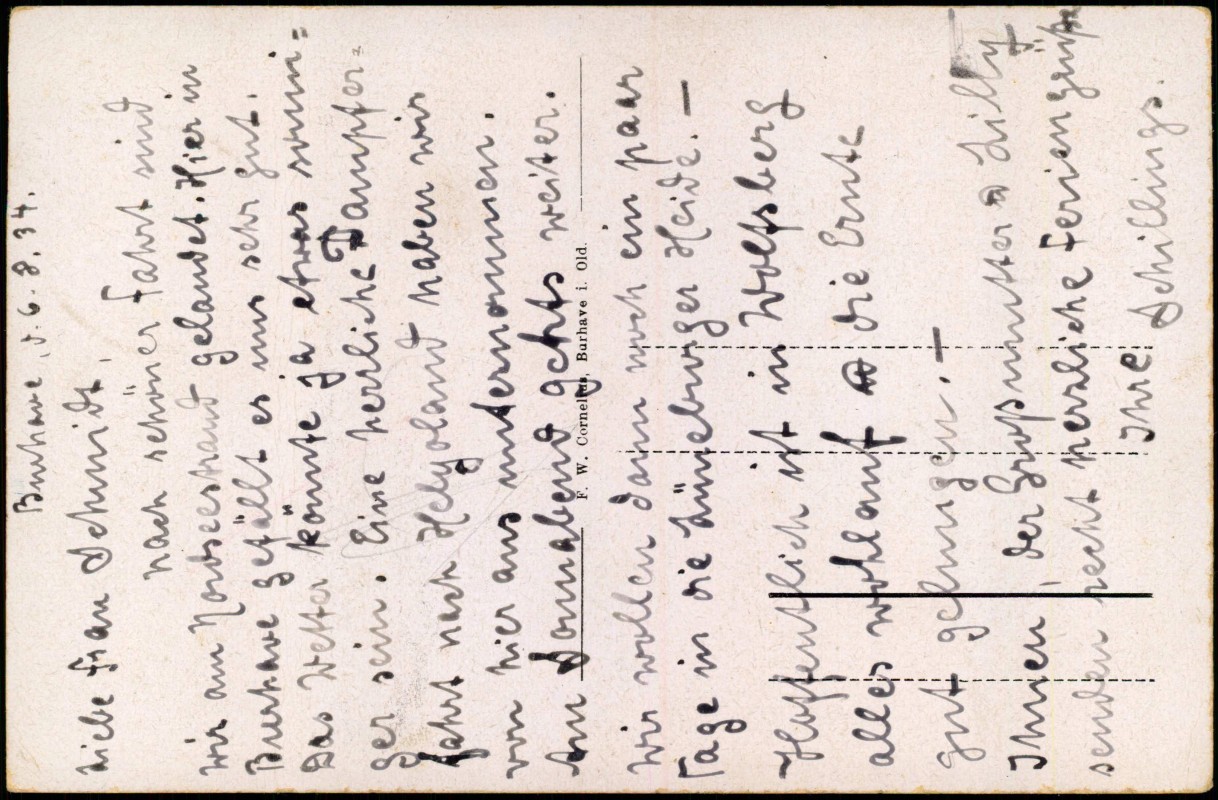 Burhave, d. 6. 8. 34.
Liebe Frau Schmidt,
nach schöner Fahrt sind
wir am Nordseestrand gelandet. Hier in
Burhave gefällt es uns sehr gut.
Das Wetter könnte ja etwas sonni=
ger sein. Eine herrliche Dampfer=
fahrt nach Helgoland haben wir
von hier aus unternommen.
Am Sonnabend gehts weiter.
Wir wollen dann noch ein paar
Tage in die Lüneburger Heide. —
Hoffentlich ist in Wolfsberg
alles wohlauf die Ernte
gut gelungen. —
Ihnen, der Großmutter Lilly
senden recht herzliche Feriengrüße
Ihre Schillings.
F. W. Cornelius, Burhave i. Old.